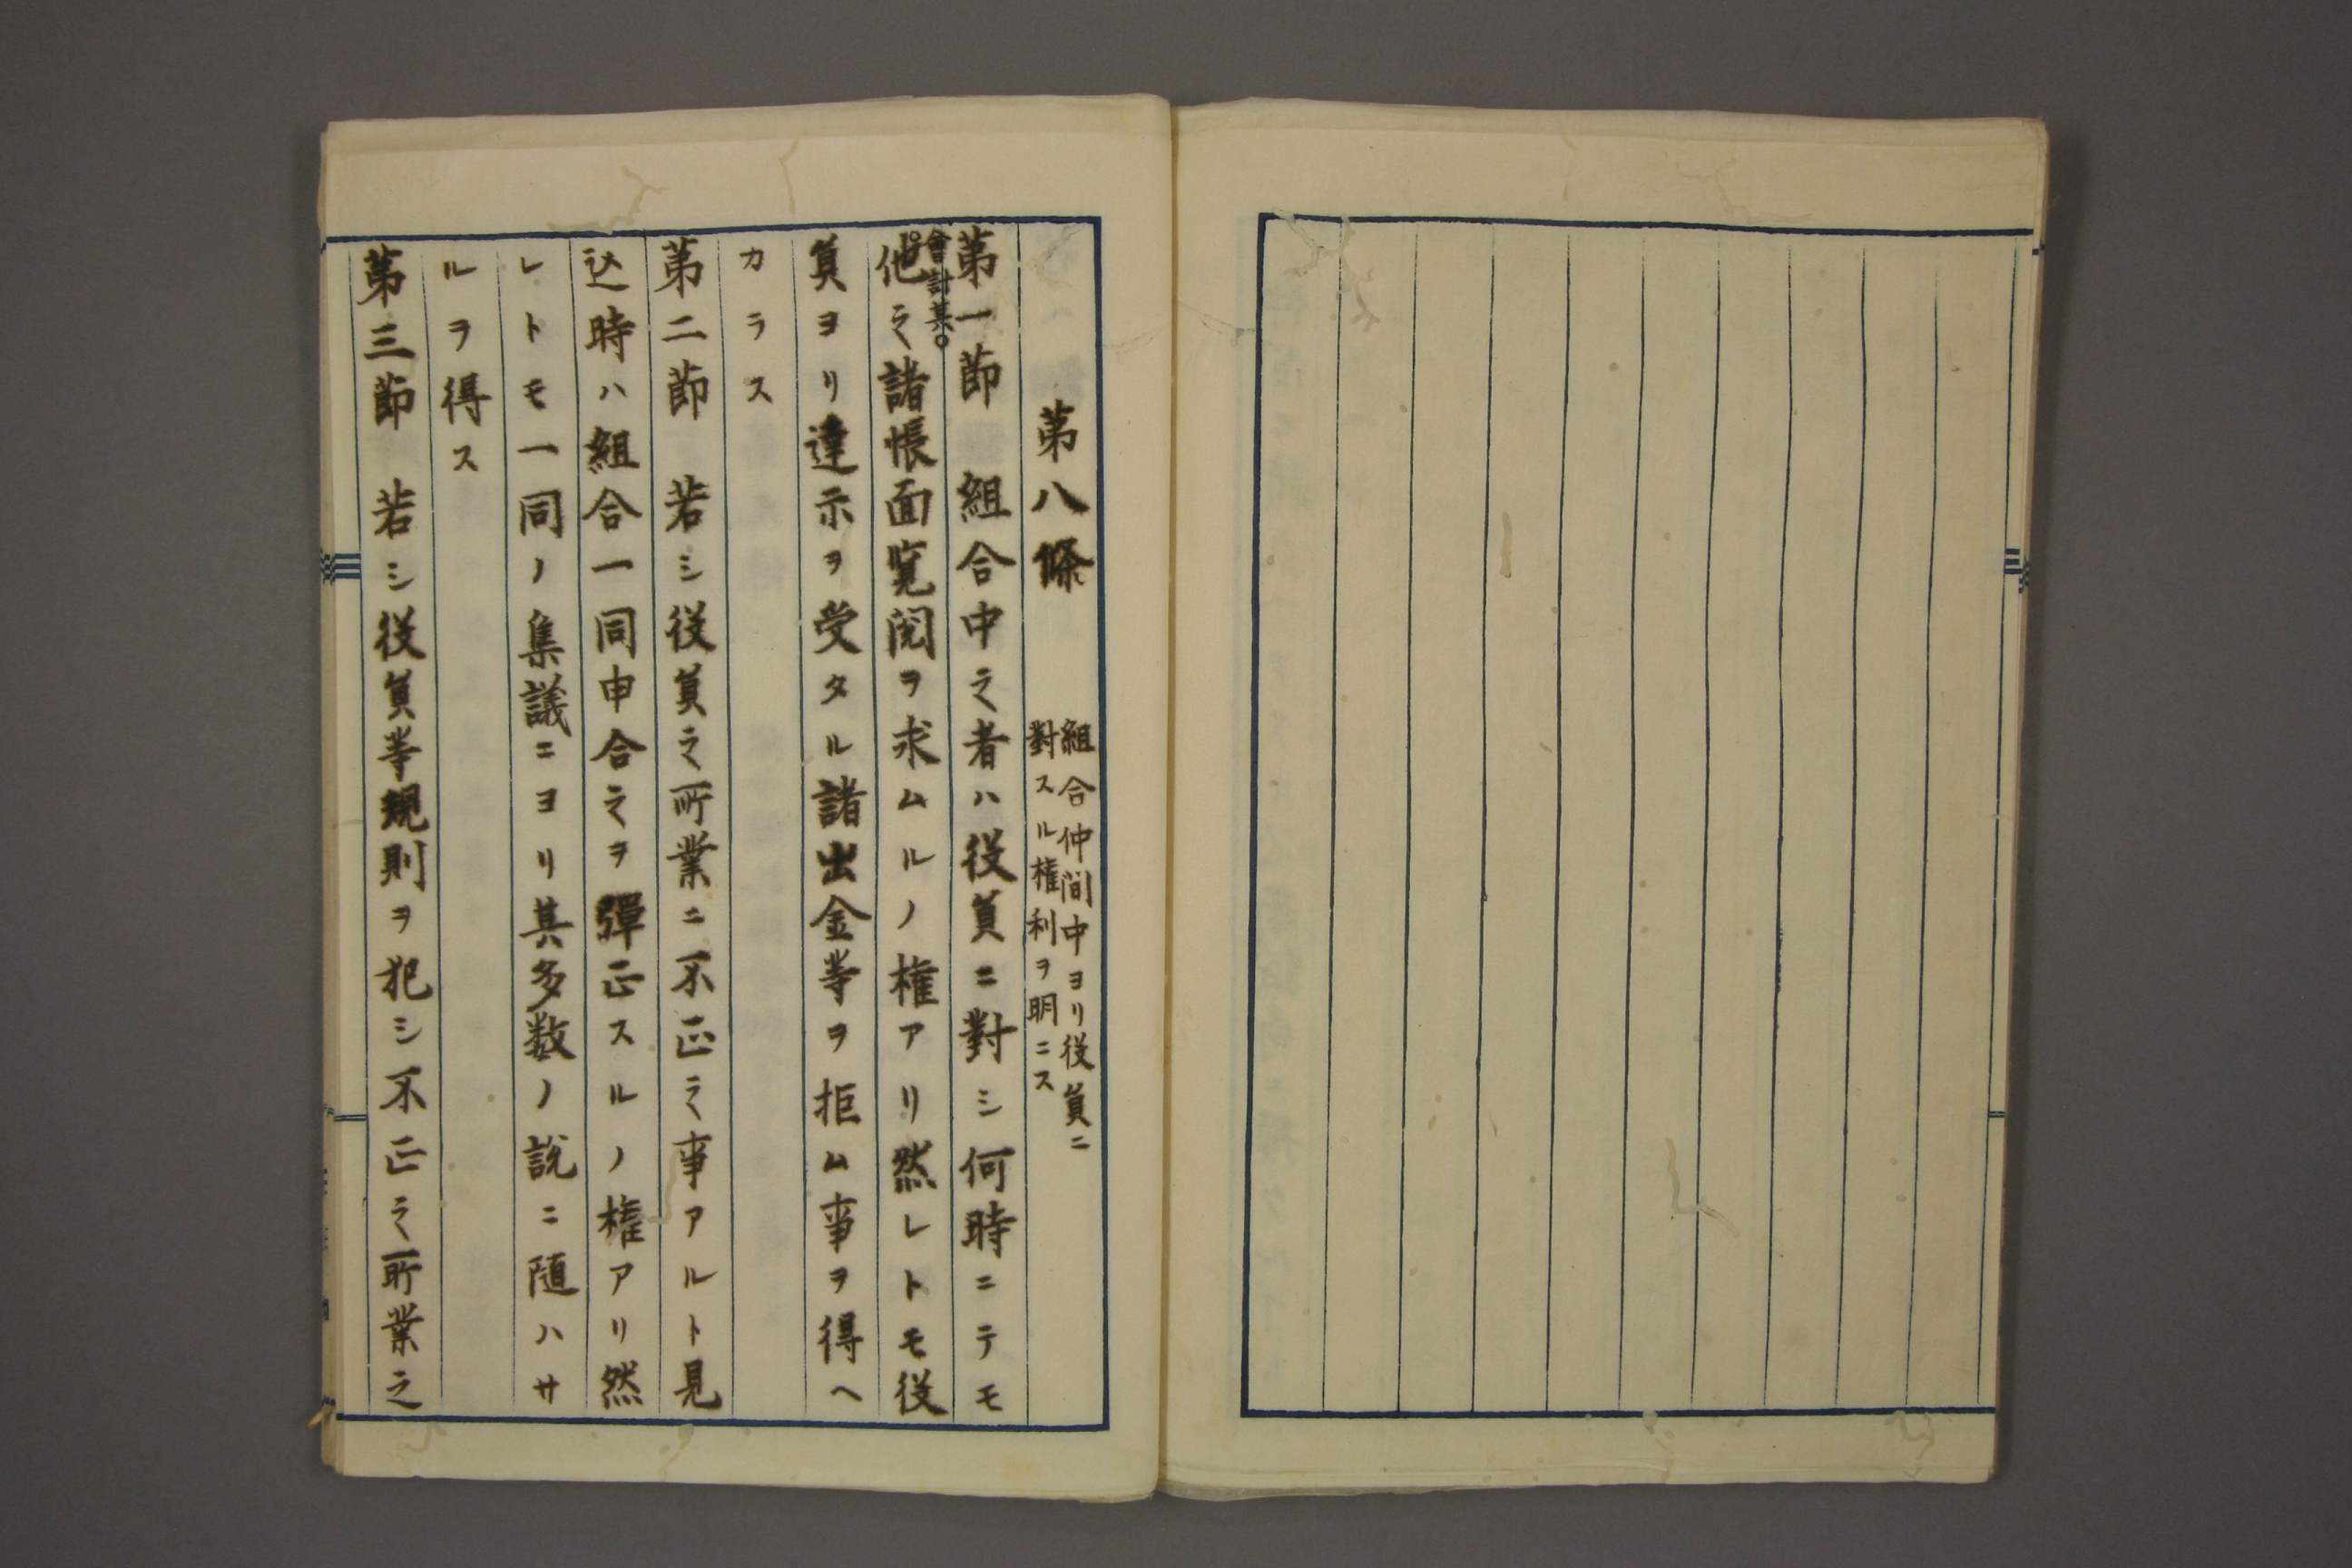 第八條
組合仲間中ヨリ役員ニ
對スル権利ヲ明ニス
第一節 組合中之者ハ役員ニ對シ何時ニテモ
會計其
他之諸帳面寛閲ヲ求ムルノ権アリ然レトモ役
員ヨリ達示ヲ受タル諸出金等ヲ拒ム事ヲ得ヘ
カラス
第二節 若シ役員之所業ニ不正之事アルト見
込時ハ組合一同申合之ヲ彈正スルノ権アリ然
レトモ一同ノ集議ニヨリ其多数ノ説ニ随ハサ
ルヲ得ス
第三節 若シ役員等規則ヲ犯シ不正之所業之